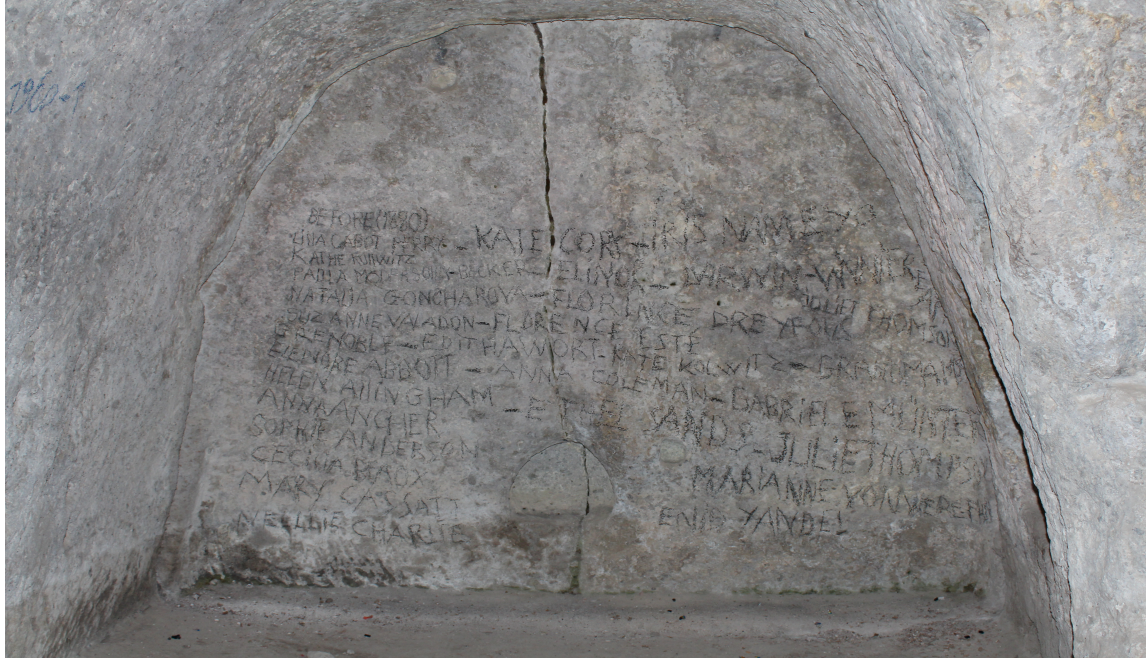 1962-1
BEFORE (1880)
LILLA CABOT PERRY - KATE CORY - IRIS NAME
KATHE KOLLWITZ
PAULA MODERSOHN-BECKER - ELINOR - DARWIN -
NATALIA GONCHAROVA - FLORIANCE JULIET THOMSON
SUZANNE VALADON - FLORENCE ESTÉ DREYFOUS
GRENOBLE - EDITH HAWORT - KATE KOLWITZ - GRANDMA
ELEINORE ABBOTT - ANNA COLEMAN - GABRIELE MÜNTER
HELEN ALLINGHAM - ETHEL SANDS - JULIE THOMPSON
ANNA ANCHER
SOPHIE ANDERSON
CECILIA BAUX MARIANNE VON WEREFKIN
MARY CASSATT ENID YANDEL
NELLIE CHARLIE